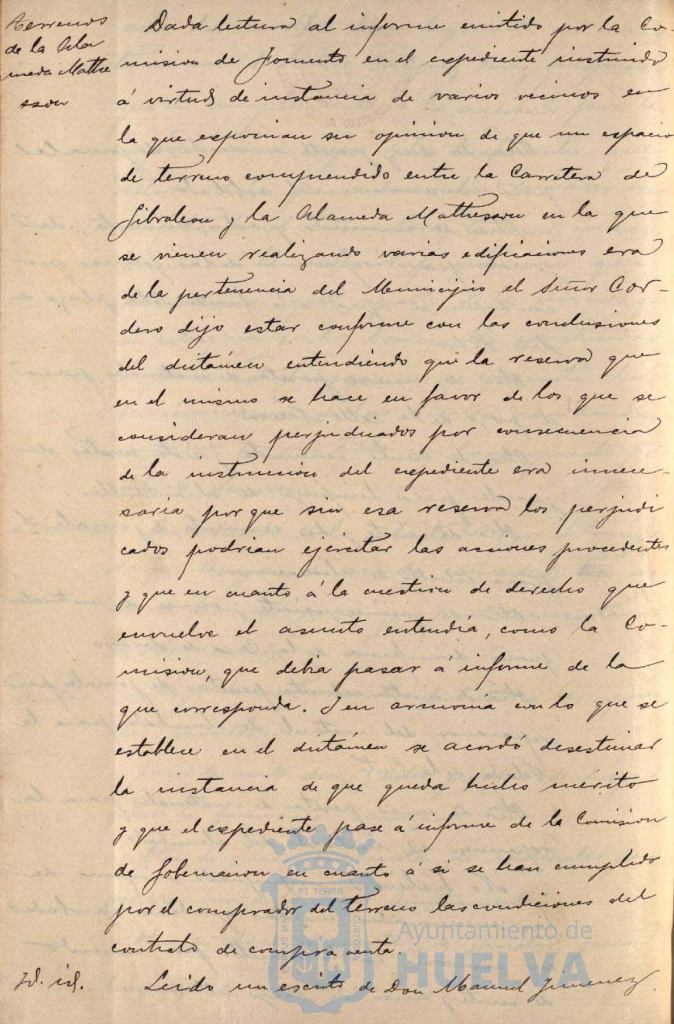 Terrenos
de la Ala
meda Mathe
sson
Dada lectura al informe emitido por la Co-
mision de Fomento en el expediente instruido
á virtud de instancia de varios vecinos en
la que exponian su opinion de que un espacio
de terreno comprendido entre la Carretera de
Gibraleon y la Alameda Mathesson en la que
se vienen realizando varias edificaciones era
de la pertenencia del Municipio el Señor Cor-
dero dijo estar conforme con las conclusiones
del dictámen entendiendo que la reserva que
en el mismo se hace en favor de los que se
consideran perjudicados por consecuencia
de la instruccion del expediente era innece-
saria porque sin esa reserva los perjudi
cados podrian ejercitar las acciones procedentes
y que en cuanto á la cuestion de derecho que
envuelve el asunto entendia, como la Co-
mision, que debia pasar á informe de la
que corresponda. Y en armonia con lo que se
establece en el dictámen se acordó desestimar
la instancia de que queda hecho mérito
y que el expediente pase á informe de la Comision
de Gobernacion en cuanto á si se han cumplido
por el comprador del terreno las condiciones del
contrato de compra venta.
Id. id.
Leido un escrito de Don Manuel Jimenez
Ayuntamiento de
HUELVA